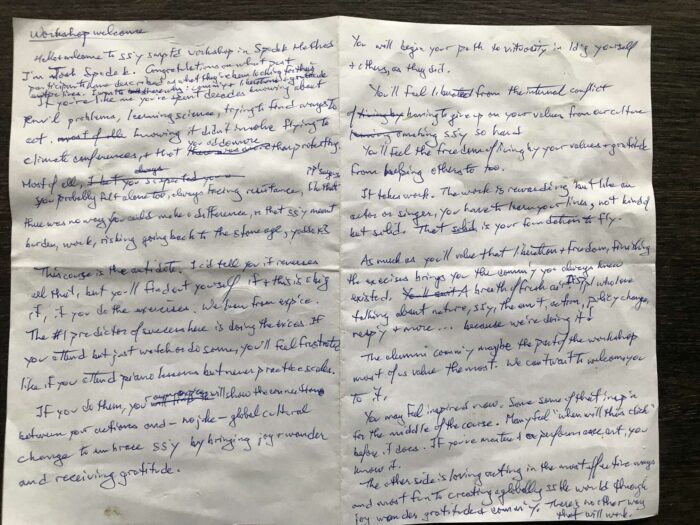 Workshop welcome
Hello welcome to ss'y simpts workshop in Spodek Method
I'm Josh Spodek. Congratulations on what past
participants have described as what they've been looking for their
entire lives. community liberation gratitude
If you're like me you've spent decades knowing about
envil problems, learning science, trying to find ways to
act. most of all knowing it didn't involve flying to
climate conferences, + that you do more than protesting.
Most of all, I bet you always
you probably felt alone too, always facing resistance, like that
there was no way you could make a difference, + that ss'y meant
burden, work, risking going back to the stone age,
This course is the antidote. I'd tell you it reverses
all that, but you'll find out yourself, if + this is a big
if, if you do the exercises. We learn from exp'ice.
The #1 predictor of success here is doing the x'ices. If
you attend but just watch or do some, you'll feel frustrated
like if you attend piano lessons but never practice scales.
If you do them, you will show the connections
between your actions and - no joke - global cultural
change to embrace ss'y by bringing joy + wonder
and receiving gratitude.
You will begin your path to virtuosity in l'd'g yourself
+ others, as they did.
You'll feel liberated from the internal conflict
of living by having to give up on your values from our culture
making ss'y so hard
You'll feel the freedom of living by your values + gratitude
from helping others to too.
It takes work. The work is rewarding but like an
actor or singer, you have to learn your lines, not kind of
but solid. That solid is your foundation to fly.
As much as you'll value that liberation + freedom, finishing
the exercises brings you the comm'y you always knew
existed. You'll A breath of fresh air. It's p'l who love
talking about nature, ss'y, the env't, action, policy change,
resp'y + more... because we're doing it!
The alumni comm'y may be the part of the workshop
most of us value the most. We can't wait to welcome you
to it.
You may feel inspired now. Save some of that insp'n
for the middle of the course. Many feel "when will this click"
before it does. If you've mastered a performance art, you
know it.
The other side is loving acting in the most effective ways
and most fun to creating a globally ss'ble world through
joy wonder gratitude + comm'y. There's no other way
that will work.